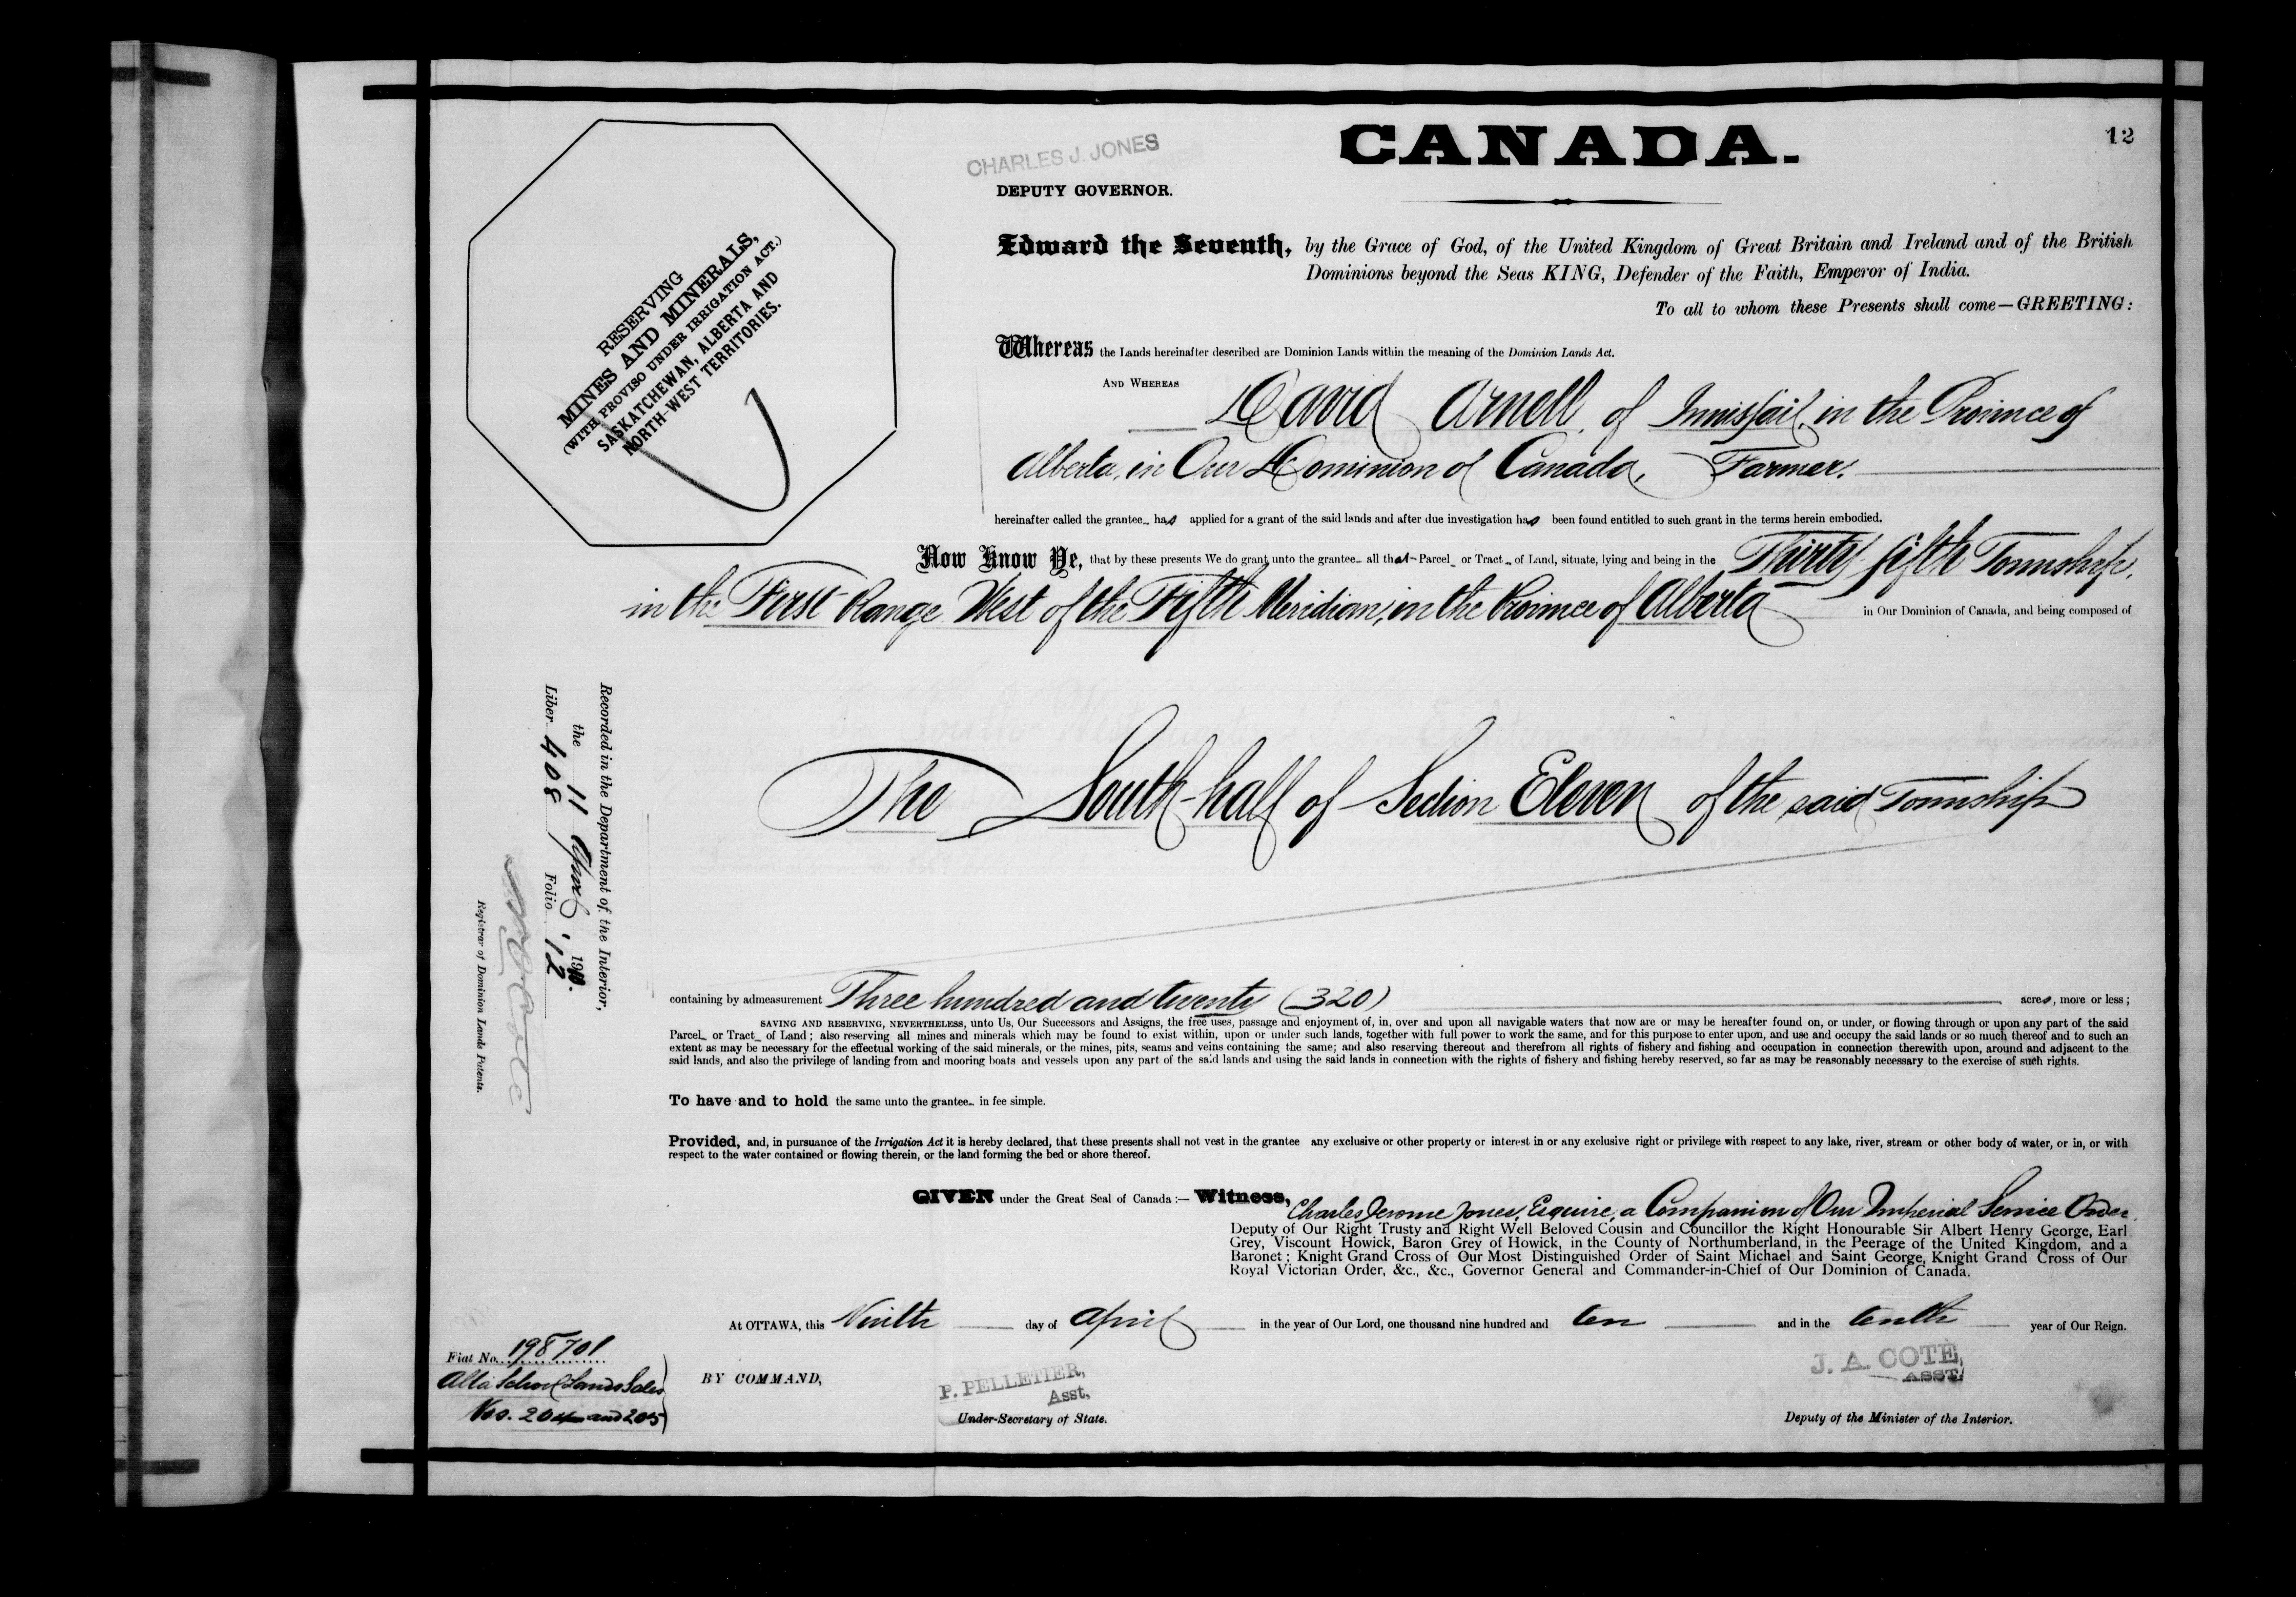 CANADA.
12
CHARLES J. JONES
DEPUTY GOVERNOR.
RESERVING
MINES AND MINERALS,
(WITH PROVISO UNDER IRRIGATION ACT.)
SASKATCHEWAN, ALBERTA AND
NORTH-WEST TERRITORIES.
Edward the Seventh, by the Grace of God, of the United Kingdom of Great Britain and Ireland and of the British
Dominions beyond the Seas KING, Defender of the Faith, Emperor of India.
To all to whom these Presents shall come—GREETING:
Whereas the Lands hereinafter described are Dominion Lands within the meaning of the Dominion Lands Act.
AND WHEREAS
David Arnell, of Innisfail, in the Province of
Alberta, in Our Dominion of Canada, Farmer.
hereinafter called the grantee has applied for a grant of the said lands and after due investigation has been found entitled to such grant in the terms herein embodied.
Now Know Ye, that by these presents We do grant unto the grantee all that Parcel or Tract of Land, situate, lying and being in the Thirty fifth Township,
in the First Range West of the Fifth Meridian, in the Province of Alberta in Our Dominion of Canada, and being composed of
The South-half of Section Eleven of the said Township
Recorded in the Department of the Interior,
the 11 April 1910.
Liber 408 Folio 12
Registrar of Dominion Lands Patents.
containing by admeasurement Three hundred and twenty (320) acres, more or less;
SAVING AND RESERVING, NEVERTHELESS, unto Us, Our Successors and Assigns, the free uses, passage and enjoyment of, in, over and upon all navigable waters that now are or may be hereafter found on, or under, or flowing through or upon any part of the said
Parcel or Tract of Land; also reserving all mines and minerals which may be found to exist within, upon or under such lands, together with full power to work the same, and for this purpose to enter upon, and use and occupy the said lands or so much thereof and to such an
extent as may be necessary for the effectual working of the said minerals, or the mines, pits, seams and veins containing the same; and also reserving thereout and therefrom all rights of fishery and fishing and occupation in connection therewith upon, around and adjacent to the
said lands, and also the privilege of landing from and mooring boats and vessels upon any part of the said lands and using the said lands in connection with the rights of fishery and fishing hereby reserved, so far as may be reasonably necessary to the exercise of such rights.
To have and to hold the same unto the grantee in fee simple.
Provided, and, in pursuance of the Irrigation Act it is hereby declared, that these presents shall not vest in the grantee any exclusive or other property or interest in or any exclusive right or privilege with respect to any lake, river, stream or other body of water, or in, or with
respect to the water contained or flowing therein, or the land forming the bed or shore thereof.
GIVEN under the Great Seal of Canada:— Witness, Charles Jerome Jones, Esquire, a Companion of Our Imperial Service Order,
Deputy of Our Right Trusty and Right Well Beloved Cousin and Councillor the Right Honourable Sir Albert Henry George, Earl
Grey, Viscount Howick, Baron Grey of Howick, in the County of Northumberland, in the Peerage of the United Kingdom, and a
Baronet; Knight Grand Cross of Our Most Distinguished Order of Saint Michael and Saint George, Knight Grand Cross of Our
Royal Victorian Order, &c., &c., Governor General and Commander-in-Chief of Our Dominion of Canada.
At OTTAWA, this Ninth day of April in the year of Our Lord, one thousand nine hundred and ten and in the tenth year of Our Reign.
Fiat No. 198701
Alta School Lands Sales
Nos. 204 and 205
BY COMMAND,
P. PELLETIER,
Asst,
Under-Secretary of State.
J. A. COTE,
ASST.
Deputy of the Minister of the Interior.